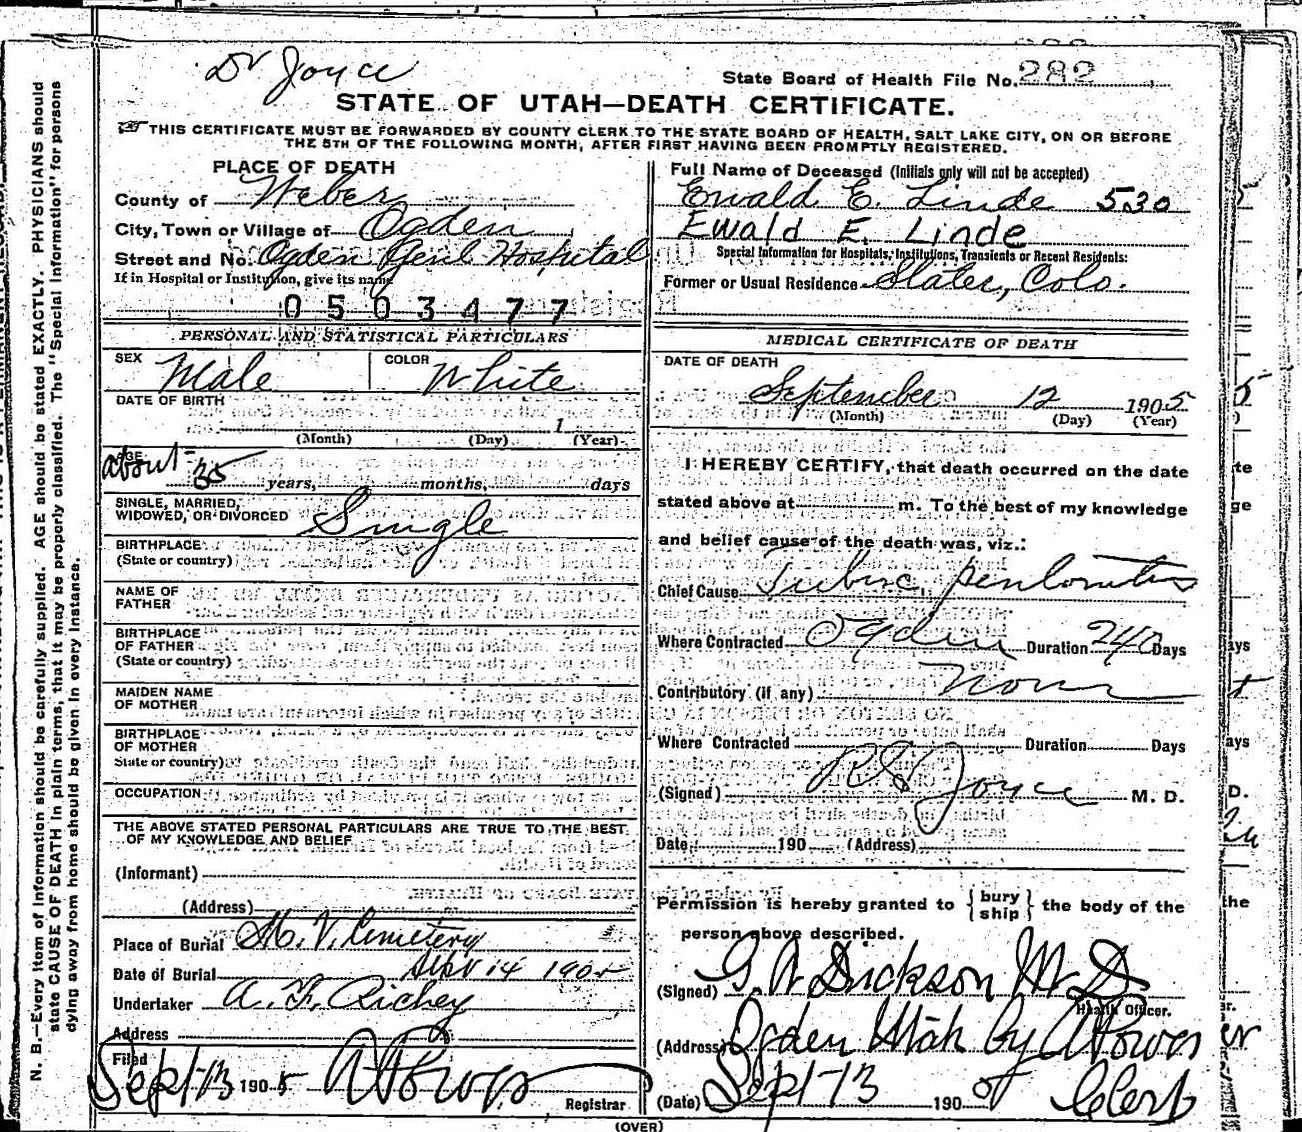 Dr Joyce
State Board of Health File No. 282
STATE OF UTAH—DEATH CERTIFICATE.
THIS CERTIFICATE MUST BE FORWARDED BY COUNTY CLERK TO THE STATE BOARD OF HEALTH, SALT LAKE CITY, ON OR BEFORE
THE 5TH OF THE FOLLOWING MONTH, AFTER FIRST HAVING BEEN PROMPTLY REGISTERED.
PLACE OF DEATH
County of Weber
City, Town or Village of Ogden
Street and No. Ogden Genl Hospital
If in Hospital or Institution, give its name
0503477
Full Name of Deceased (Initials only will not be accepted)
Ewald E. Linde 530
Ewald E. Linde
Special Information for Hospitals, Institutions, Transients or Recent Residents:
Former or Usual Residence Slater, Colo.
PERSONAL AND STATISTICAL PARTICULARS
SEX Male COLOR White
DATE OF BIRTH
1
(Month) (Day) (Year)
AGE
about 35 years, months, days
SINGLE, MARRIED,
WIDOWED, OR DIVORCED Single
BIRTHPLACE
(State or country)
NAME OF
FATHER
BIRTHPLACE
OF FATHER
(State or country)
MAIDEN NAME
OF MOTHER
BIRTHPLACE
OF MOTHER
State or country)
OCCUPATION
THE ABOVE STATED PERSONAL PARTICULARS ARE TRUE TO THE BEST
OF MY KNOWLEDGE AND BELIEF
(Informant)
(Address)
Place of Burial M. V. Cemetery
Date of Burial 14 1905
Undertaker A. F. Richey
Address
Filed
Sept 13 1905
Registrar
MEDICAL CERTIFICATE OF DEATH
DATE OF DEATH
September 12 1905
(Month) (Day) (Year)
I HEREBY CERTIFY, that death occurred on the date
stated above at m. To the best of my knowledge
and belief cause of the death was, viz.:
Chief Cause Tuberc. peritonitis
Where Contracted Ogden Duration 240 Days
Contributory (if any) None
Where Contracted Duration Days
(Signed) R S Joyce M. D.
Date 190 (Address)
Permission is hereby granted to { bury ship } the body of the
person above described.
(Signed) G. W Dickson M. D
Health Officer.
(Address) Ogden Utah by
(Date) Sept 13 1905 Clerk
(OVER)
N. B.—Every item of information should be carefully supplied. AGE should be stated EXACTLY. PHYSICIANS should
state CAUSE OF DEATH in plain terms, that it may be properly classified. The "Special Information" for persons
dying away from home should be given in every instance.